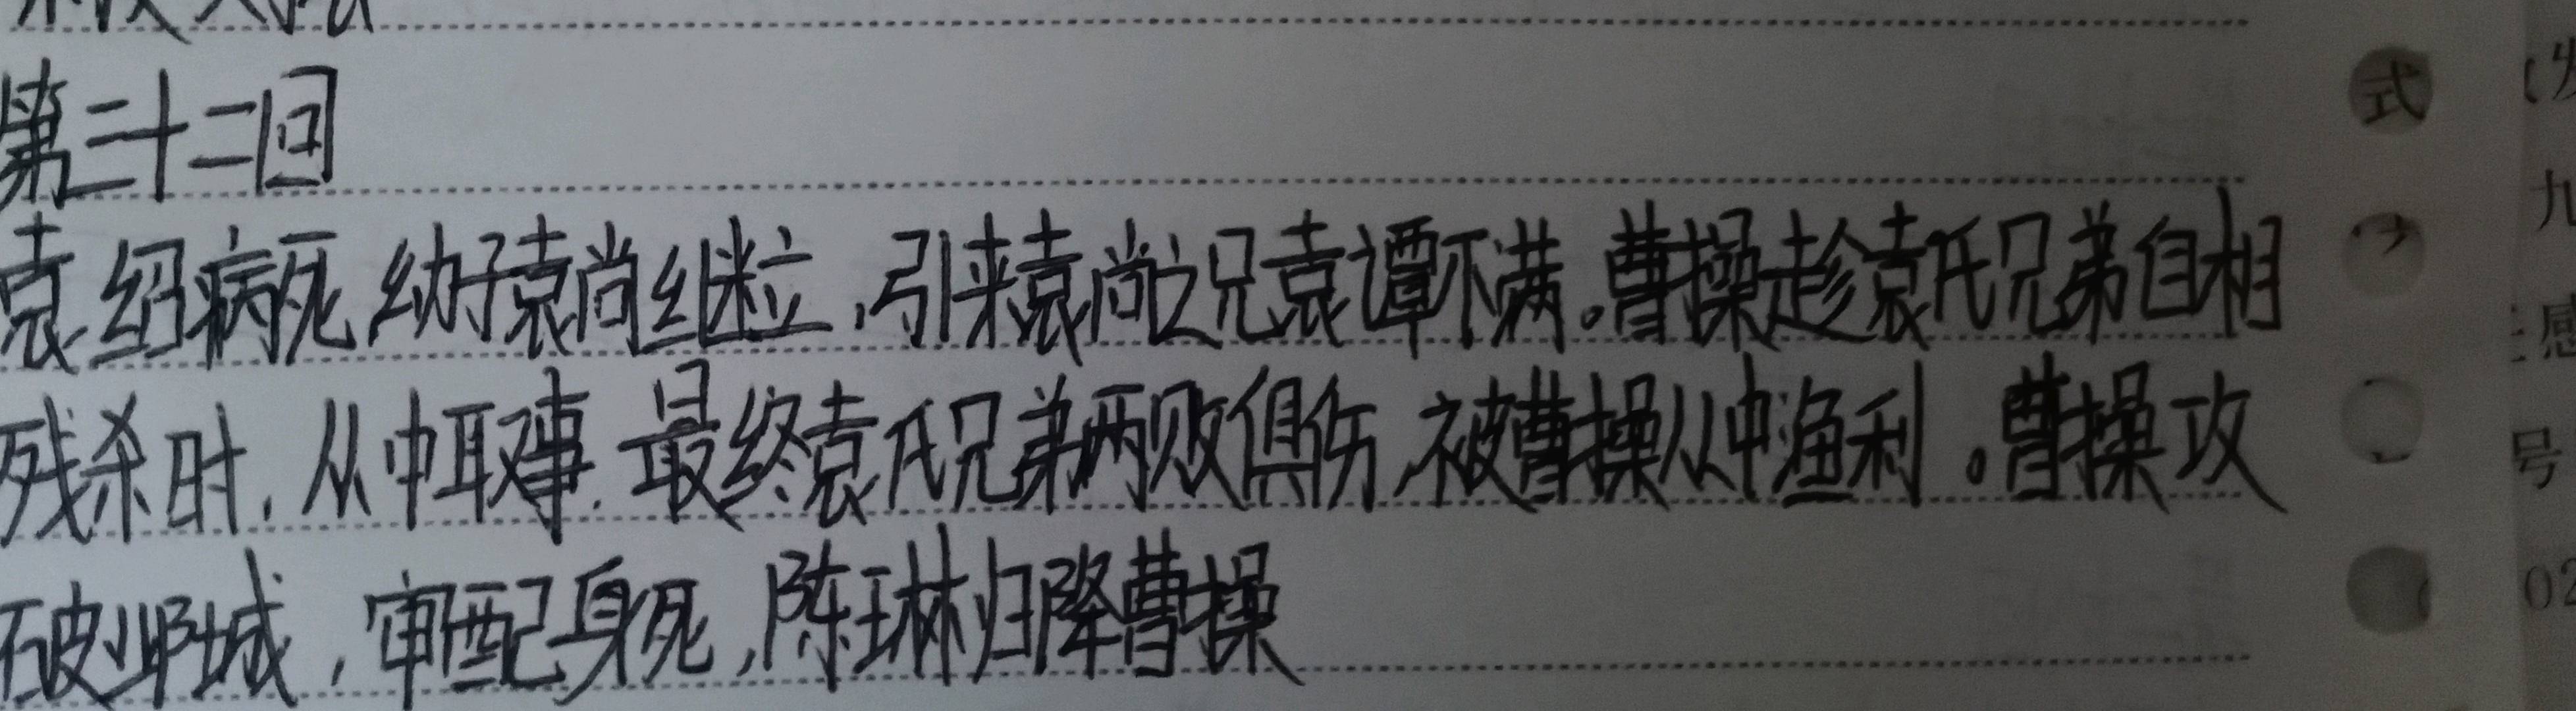 第三十二回
袁绍病死,幼子袁尚继立,引来袁尚之兄袁谭不满。曹操趁袁氏兄弟自相
残杀时,从中取事,最终袁氏兄弟两败俱伤,被曹操从中渔利。曹操攻
破邺城,审配身死,陈琳归降曹操
式
九
感
号
02